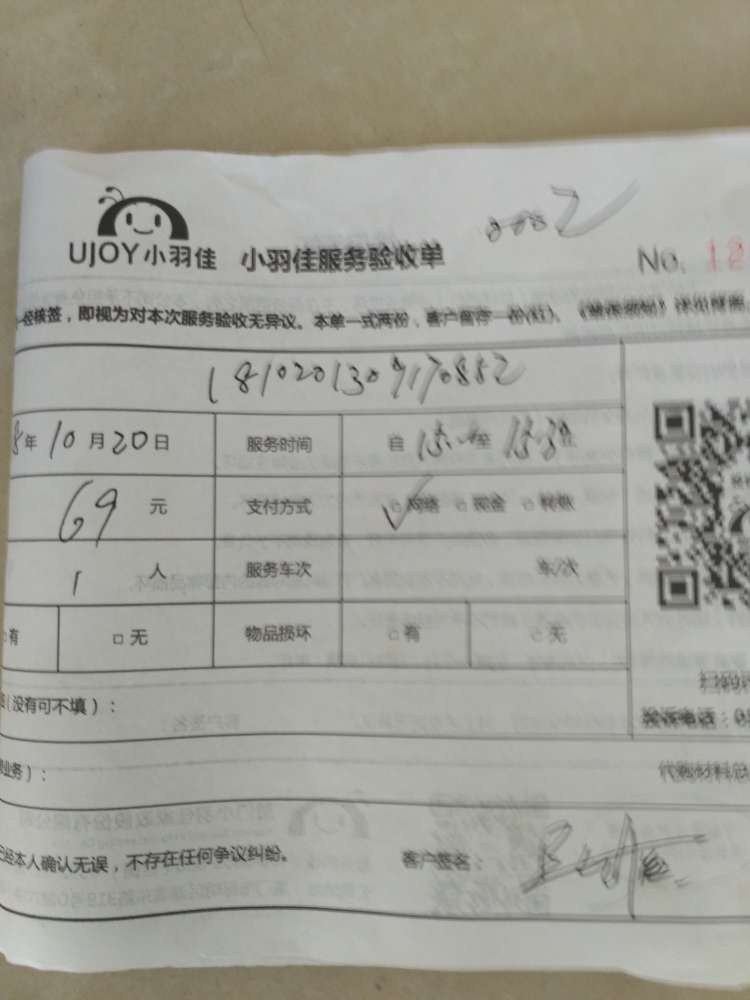 0002
UJOY小羽佳 小羽佳服务验收单 No. 12
经核签，即视为对本次服务验收无异议。本单一式两份，客户留存一份(红)、
1810201309170852
8年10月20日 服务时间 自 至
69元 支付方式 ☑网络 □现金 □转账
1人 服务车次 车/次
□有 □无 物品损坏 □有 □无
(没有可不填)：
投诉电话：05
业务)： 代购材料总
已经本人确认无误，不存在任何争议纠纷。 客户签名：